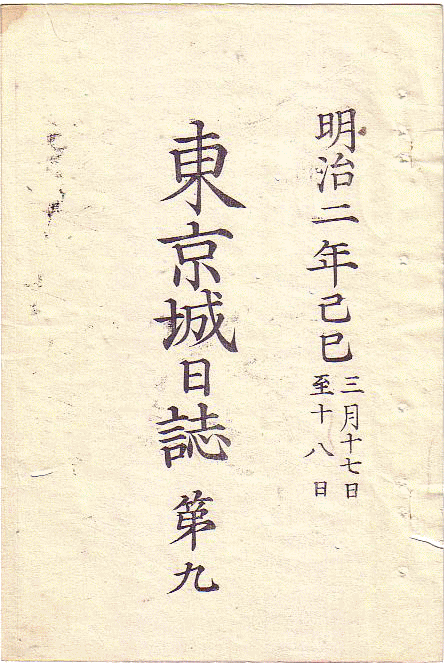 明治二年己巳
三月十七日
至十八日
東京城日誌 第九